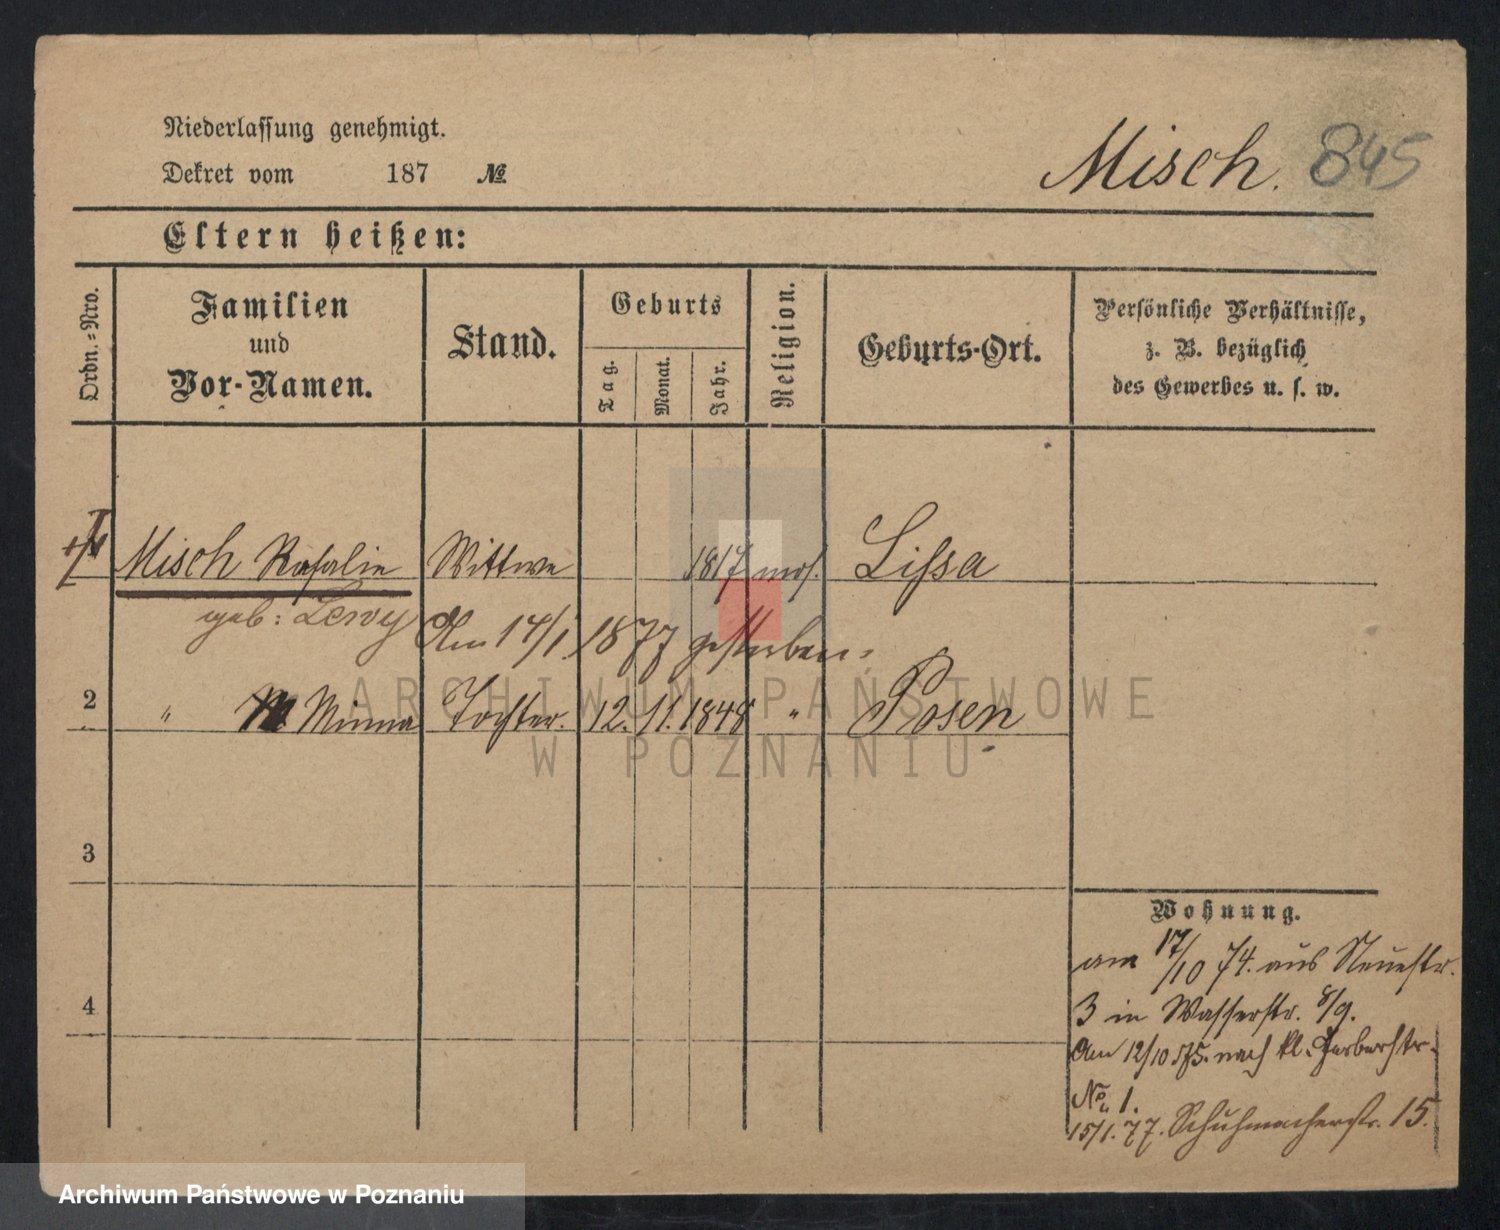 Niederlassung genehmigt.
Dekret vom 187 №
Misch. 845
Eltern heißen:
Ordn.-Nro.
Familien
und
Vor-Namen.
Stand.
Geburts
Tag.
Monat.
Jahr.
Religion.
Geburts-Ort.
Persönliche Verhältnisse,
z. B. bezüglich
des Gewerbes u. s. w.
Misch Rosalie Wittwe 1817 mos. Lissa
geb: Lewy Am 14/1. 1877 gestorben.
2 " Minna Tochter. 12. 11. 1848 " Posen
ARCHIWUM PAŃSTWOWE
W POZNANIU
3
4
Wohnung.
am 17/10 74. aus Neuestr.
3 in Wasserstr. 8/9.
Am 12/10 75. nach kl. Gerberstr.
No. 1.
15/1. 77. Schuhmacherstr. 15.
Archiwum Państwowe w Poznaniu